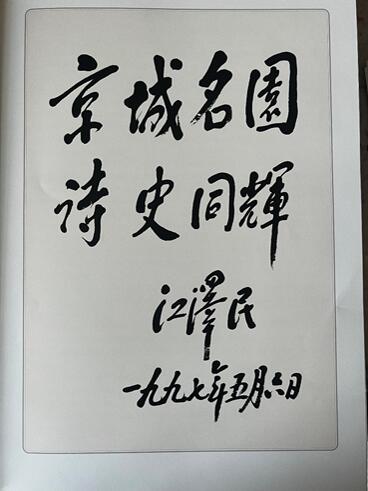 京城名園
詩史同輝
江澤民
一九九七年五月六日